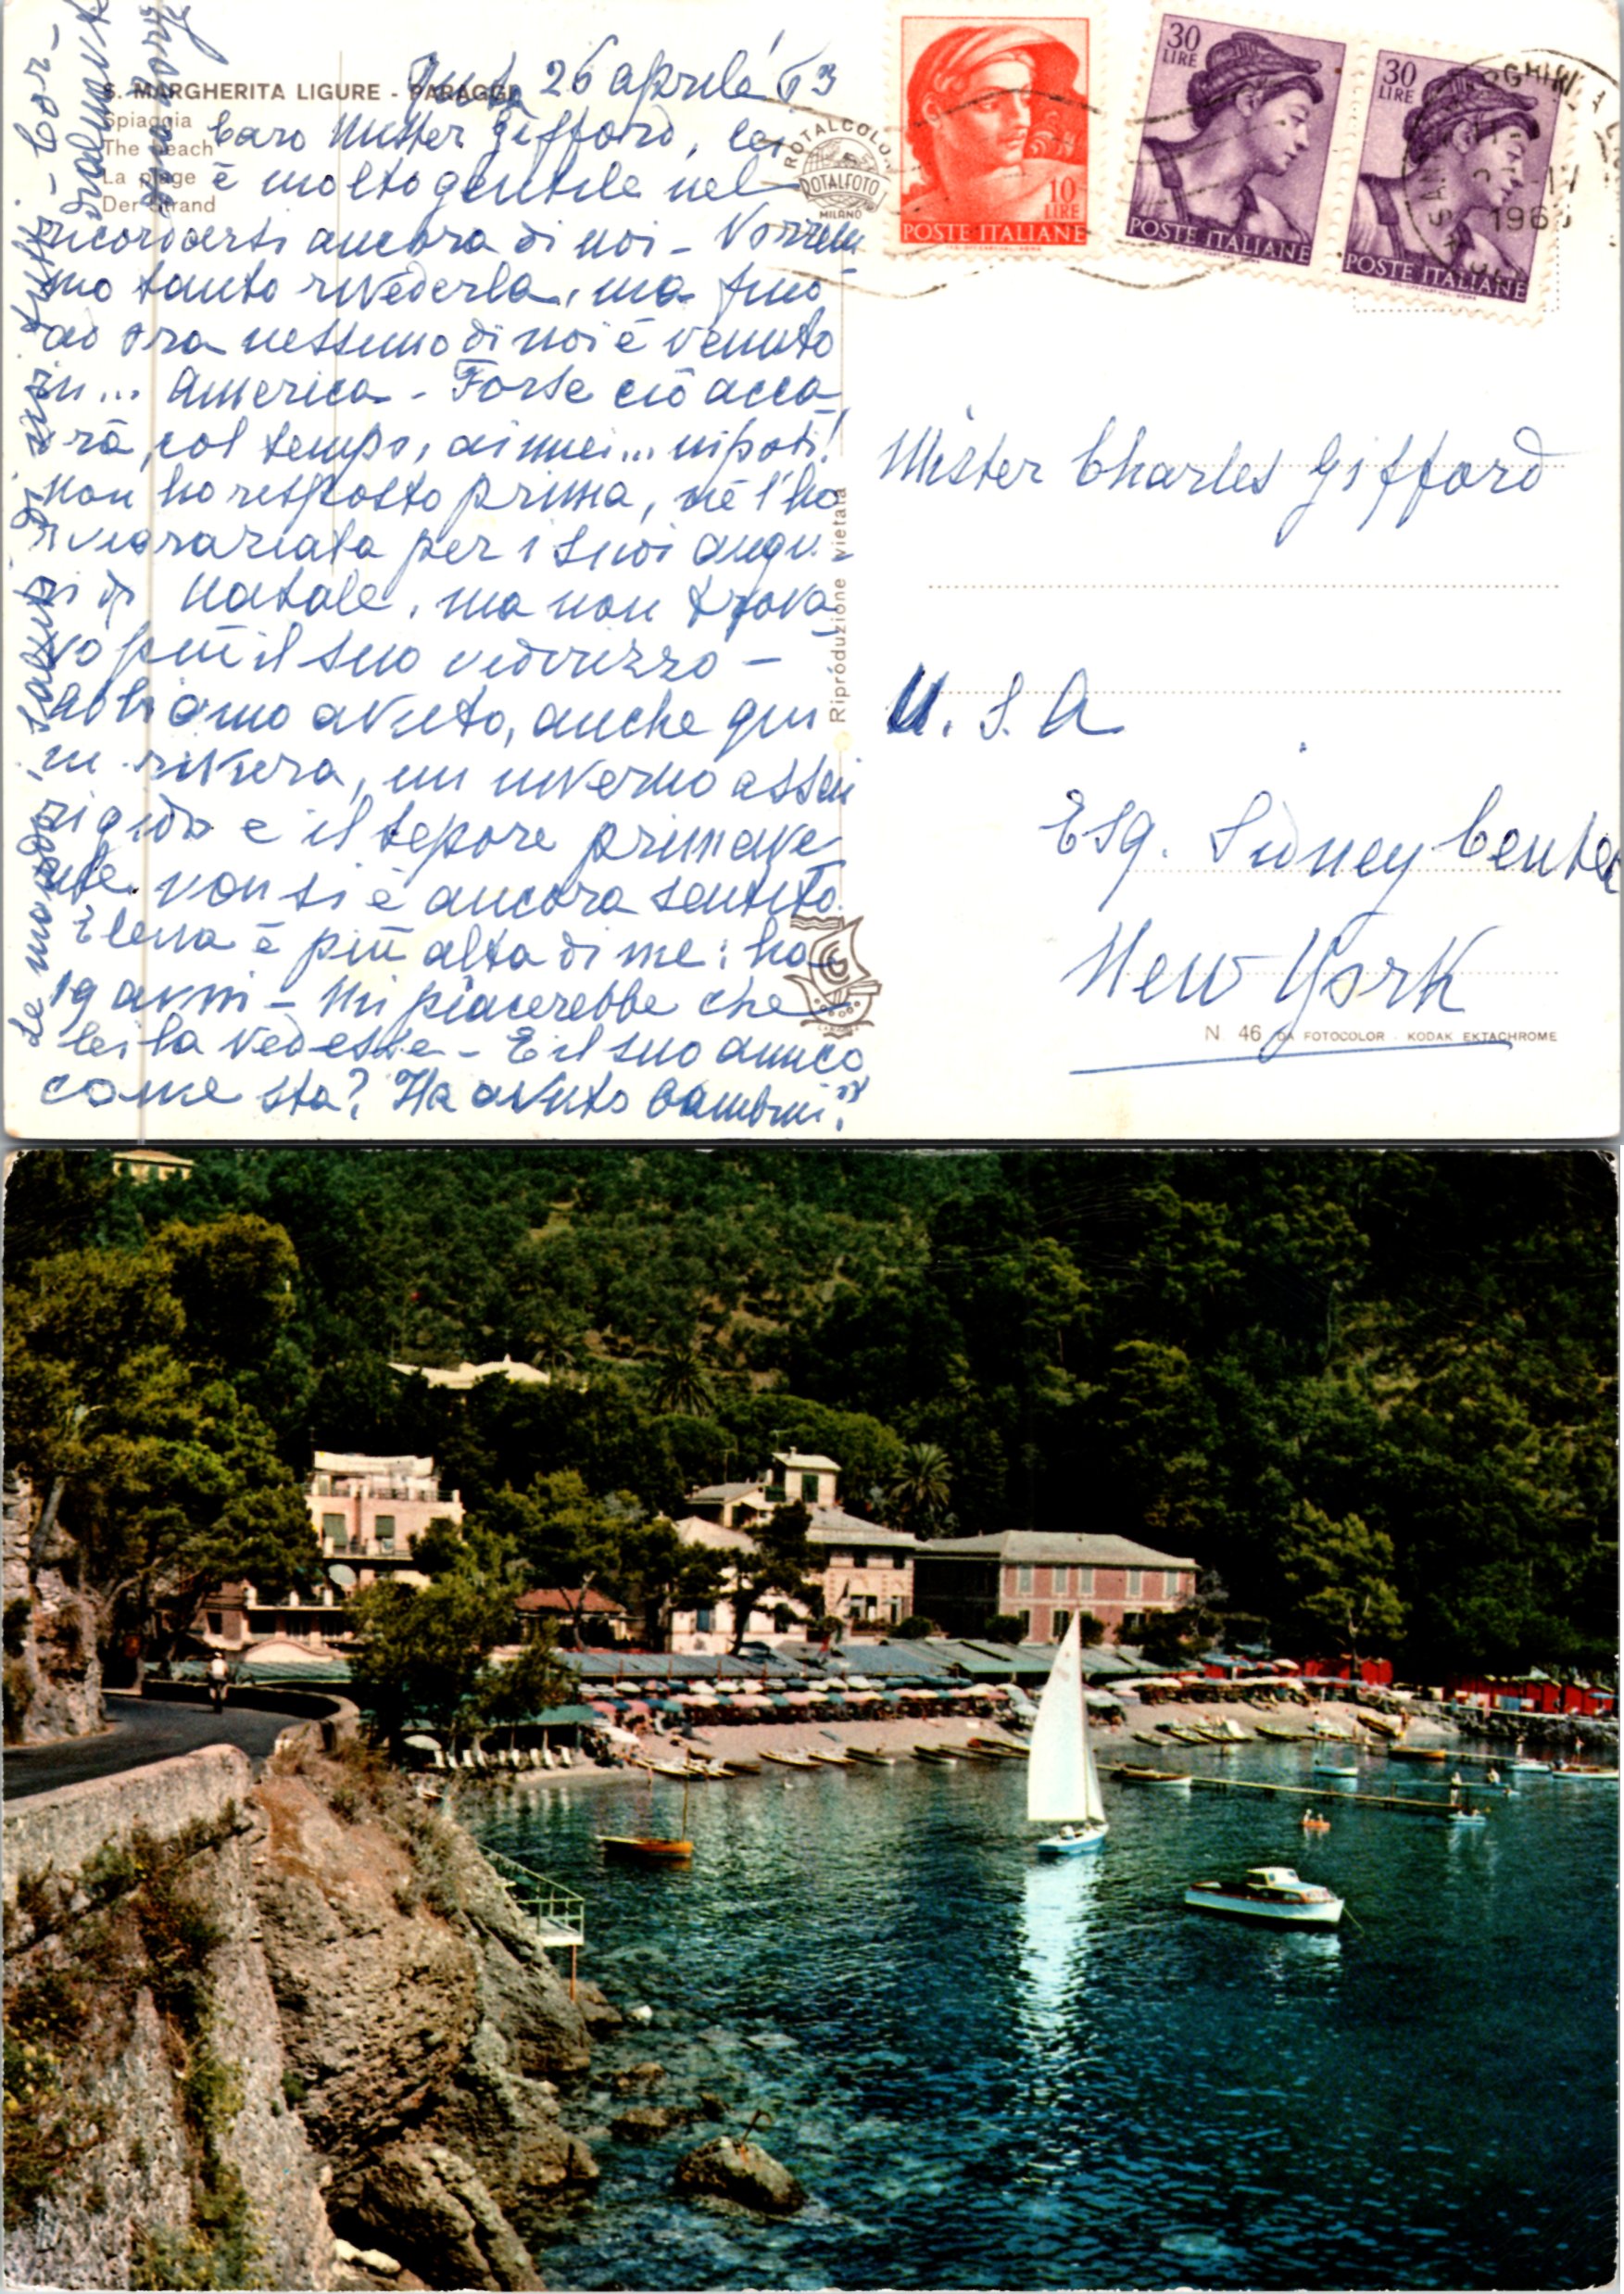 S. MARGHERITA LIGURE - PARAGGI
Spiaggia
The beach
La plage
Der Strand
26 aprile '63
Caro Mister Gifford, lei
è molto gentile nel
ricordarsi ancora di noi - Vorrem
mo tanto rivederla, ma fino
ad ora nessuno di noi è venuto
in... America - Forse ciò acca
drà, col tempo, ai miei... nipoti!
Non ho risposto prima, nè l'ho
ringraziata per i suoi augu-
ri di Natale, ma non trova
vo più il suo indirizzo -
Abbiamo avuto, anche qui
in riviera, un inverno assai
rigido e il tepore primave
rile non si è ancora sentito.
Elena è più alta di me: ha
19 anni - Mi piacerebbe che
lei la vedesse - E il suo amico
come sta? Ha avuto bambini?
Le mando saluti di noi tutti - Cor-
dialmente
ROTALCOLOR
ROTALFOTO
MILANO
10
LIRE
POSTE ITALIANE
30
LIRE
POSTE ITALIANE
30
LIRE
POSTE ITALIANE
196
Riproduzione vietata
Mister Charles Gifford
U. S. A
Esq. Sidney Center
New York
N. 46 DA FOTOCOLOR - KODAK EKTACHROME